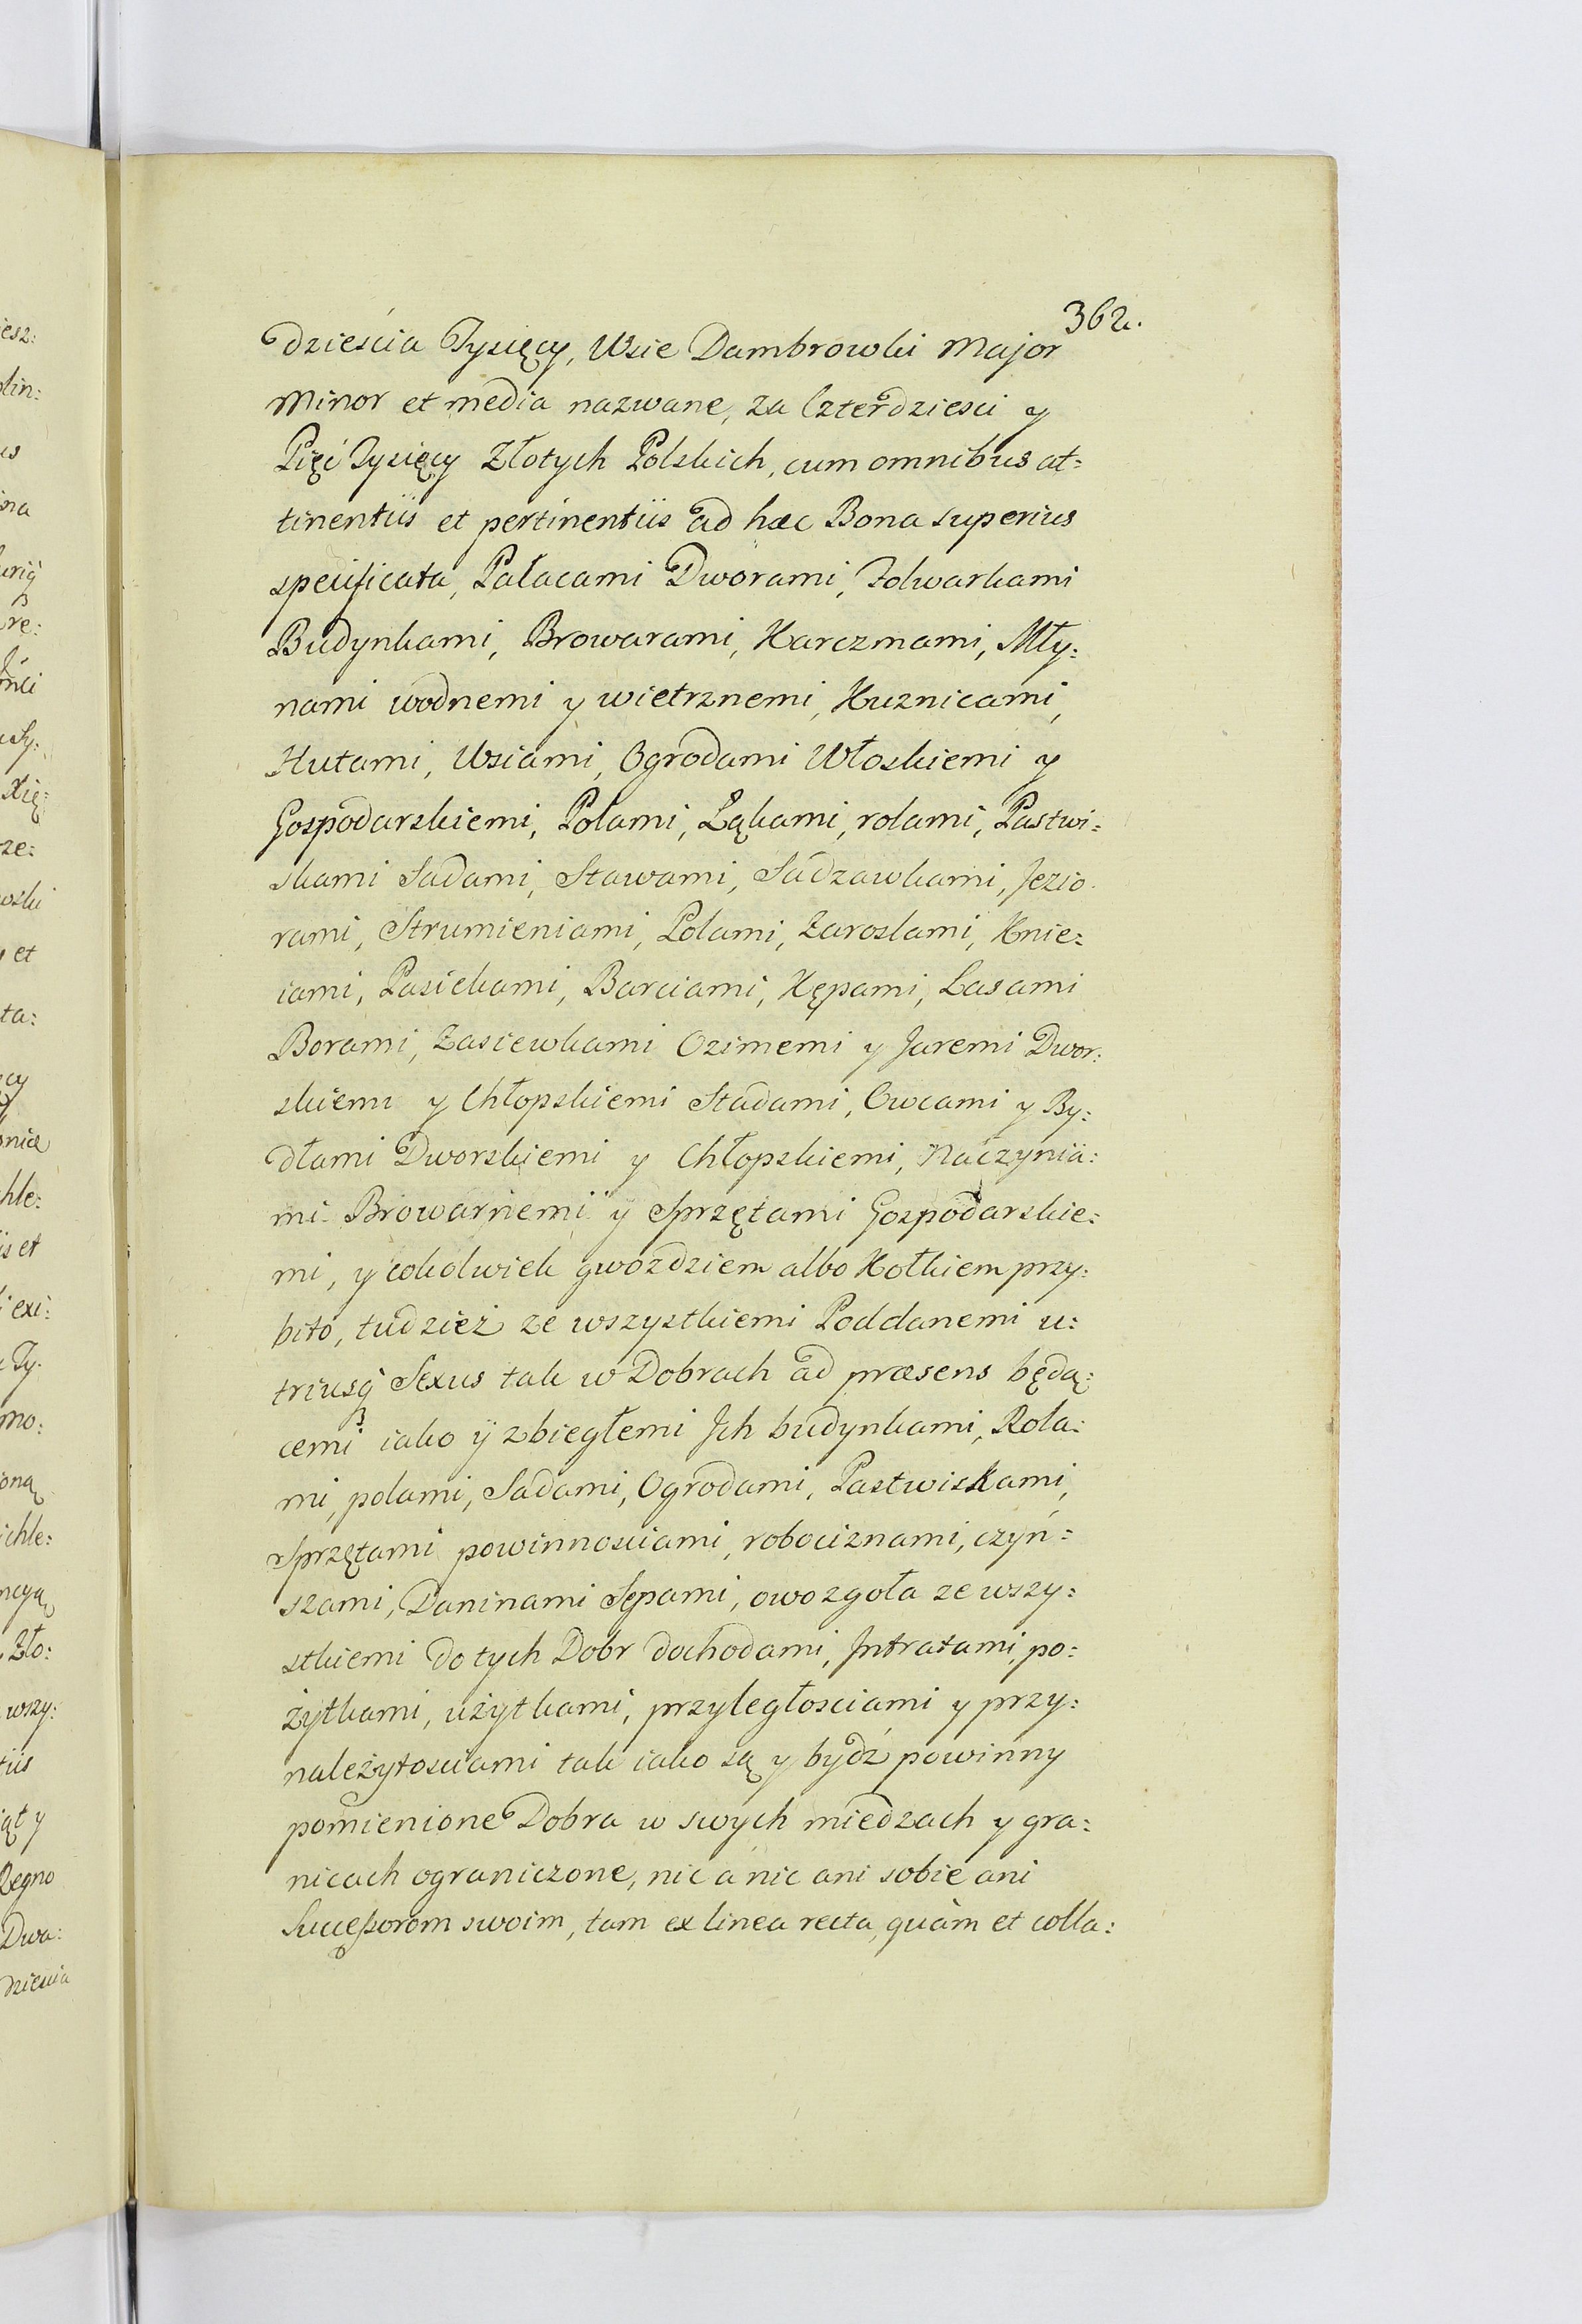 362.
dzieścia Tysięcy, Wsie Dambrowki Major
Minor et media nazwane, za Czterdziesci y
Pięć Tysięcy Złotych Polskich, cum omnibus at:
tinentiis et pertinentiis ad hæc Bona superius
specificata, Pałacami Dworami, Folwarkami
Budynkami, Browarami, Karczmami, Mły:
nami wodnemi y wietrznemi, Kuznicami,
Hutami, Wsiami, Ogrodami Włoskiemi y
Gospodarskiemi, Polami, Łąkami, rolami, Pastwi:
skami Sadami, Stawami, Sadzawkami, Jezio.
rami, Strumieniami, Polami, Zaroslami, Knie:
iami, Pasiekami, Barciami, Kępami, Lasami
Borami, Zasiewkami Ozimemi y Jaremi Dwor:
skiemi y Chłopskiemi Stadami, Owcami y By:
dłami Dworskiemi y Chłopskiemi, Naczynia:
mi Browarnemi y Sprzętami Gospodarskie:
mi, y cokolwiek gwozdziem albo Kołkiem przy:
bito, tudzież ze wszystkiemi Poddanemi u:
triusq Sexus tak w Dobrach ad præsens będą:
cemi iako ÿ zbiegłemi Jch budynkami, Rola:
mi, polami, Sadami, Ogrodami, Pastwiskami,
Sprzętami powinnosciami, robociznami, czyń:
szami, Daninami Sępami, owo zgoła ze wszy:
stkiemi do tych Dobr dochodami, Jntratami, po:
żytkami, użytkami, przyległosciami y przy:
należytosciami tak iako są y bydź powinny
pomienione Dobra w swych miedzach y gra:
nicach ograniczone, nic a nic ani sobie ani
Sukceßorom swoim, tam ex linea recta, quàm et colla: